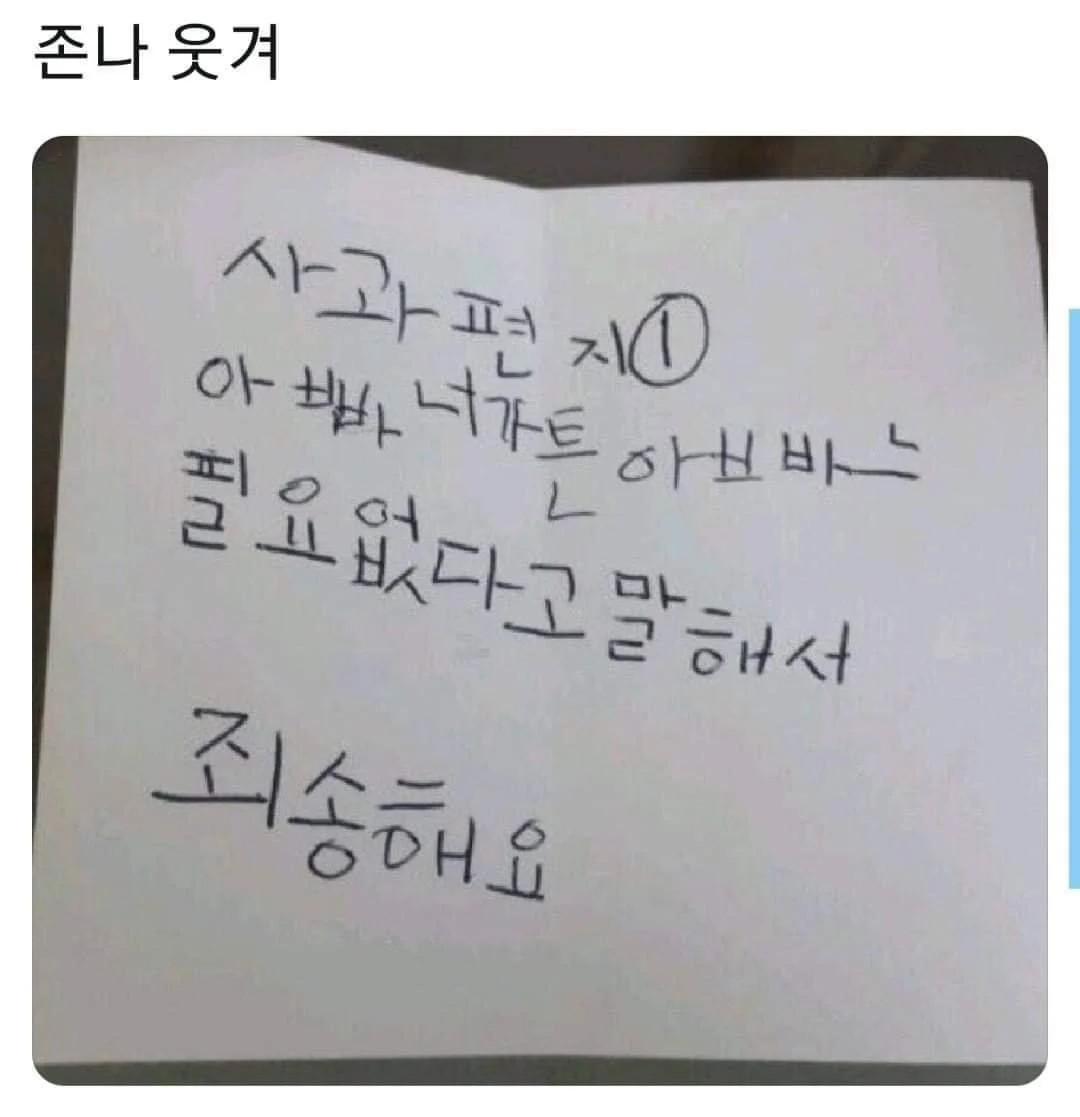 존나 웃겨
사과편지①
아빠 너가튼 아브바는
필요없다고 말해서
죄송해요